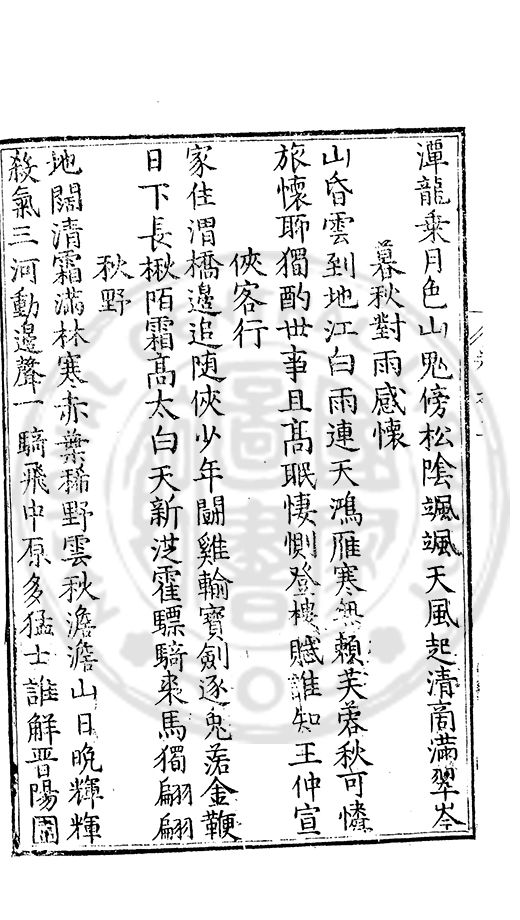 潭龍乗月色山鬼傍松陰颯颯天風起清商滿翠岑
暮秋對雨感懷
山昏雲到地江白雨連天鴻雁寒無賴芙蓉秋可憐
旅懷聊獨酌世事且高眠悽惻登樓賦誰知王仲宣
俠客行
家住渭橋邊追随俠少年鬪雞輸寶劍逐兔落金鞭
日下長楸陌霜高太白天新従霍驃騎裘馬獨翩翩
秋野
地闊清霜滿林寒赤葉稀野雲秋澹澹山日晩輝輝
殺氣三河動邊聲一騎飛中原多猛士誰解晋陽圍